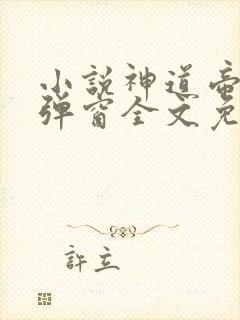 小說神道帝
彈窗全文免
許立